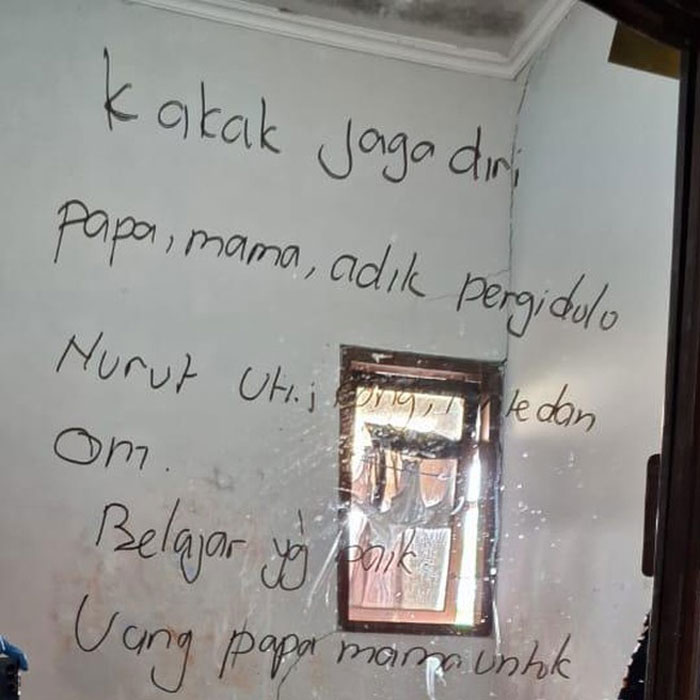 kakak jaga diri
papa, mama, adik pergi dulo
Nurut Uti, kung, dan
Om.
Belajar yg baik
Uang papa mama untuk